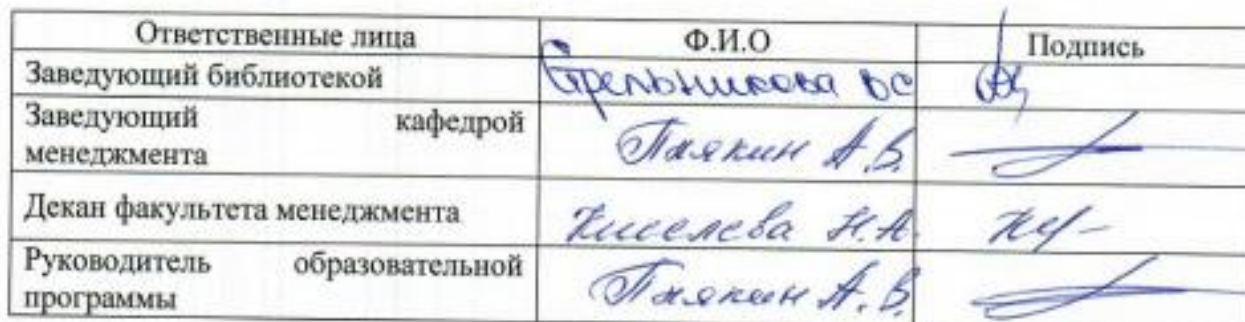 Ответственные лица Ф.И.О Подпись
Заведующий библиотекой Стрельникова ВС
Заведующий кафедрой
менеджмента
А.В.
Декан факультета менеджмента Киселева Н.А.
Руководитель образовательной
программы
А.В.